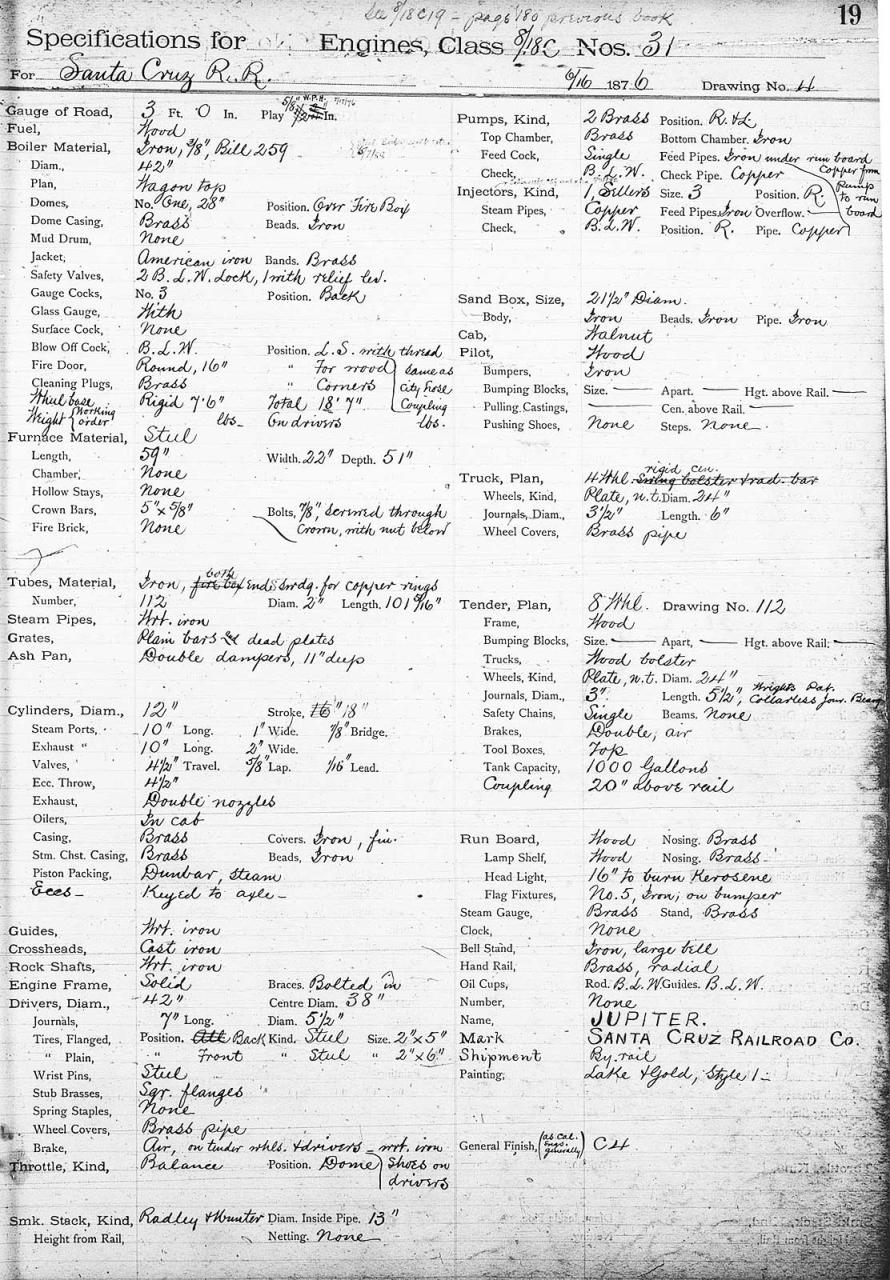 See 8/18 C 19 - page 180 previous book
19
Specifications for Engines, Class 8/18C Nos. 31
For Santa Cruz R.R. 6/16 1876 Drawing No. 4
Gauge of Road, 3 Ft. 0 In. Play In.
Fuel, Wood
Boiler Material, Iron, 3/8", Bill 259
Diam., 42"
Plan, Wagon top
Domes, No. One, 28" Position. Over Fire Box
Dome Casing, Brass Beads. Iron
Mud Drum, None
Jacket, American iron Bands. Brass
Safety Valves, 2 B.L.W. Lock, 1 with relief lev.
Gauge Cocks, No. 3 Position. Back
Glass Gauge, With
Surface Cock, None
Blow Off Cock, B.L.W. Position. L.S. with thread
Fire Door, Round, 16" " For wood same as
Cleaning Plugs, Brass " Corners city hose
Wheel base Rigid 7'6" Total 18' 7" Coupling
Weight working order lbs. On drivers lbs.
Furnace Material, Steel
Length, 59" Width. 22" Depth. 51"
Chamber, None
Hollow Stays, None
Crown Bars, 5" x 5/8" Bolts, 7/8", screwed through
Fire Brick, None Crown, with nut below
Tubes, Material, Iron, fire box both ends swdg. for copper rings
Number, 112 Diam. 2" Length. 101 5/16"
Steam Pipes, Wrt. iron
Grates, Plain bars & dead plates
Ash Pan, Double dampers, 11" deep
Cylinders, Diam., 12" Stroke, 16" 18"
Steam Ports, 10" Long. 1" Wide. 7/8" Bridge.
Exhaust " 10" Long. 2" Wide.
Valves, 4 1/2" Travel. 5/8" Lap. 1/16" Lead.
Ecc. Throw, 4 1/2"
Exhaust, Double nozzles
Oilers, In cab
Casing, Brass Covers. Iron, fin.
Stm. Chst. Casing, Brass Beads, Iron
Piston Packing, Dunbar, steam
Eccs - Keyed to axle -
Guides, Wrt. iron
Crossheads, Cast iron
Rock Shafts, Wrt. iron
Engine Frame, Solid Braces. Bolted in
Drivers, Diam., 42" Centre Diam. 38"
Journals, 7" Long. Diam. 5 1/2"
Tires, Flanged, Position. All Back Kind. Steel Size. 2" x 5"
" Plain, " Front " Steel " 2" x 6"
Wrist Pins, Steel
Stub Brasses, Sqr. flanges
Spring Staples, None
Wheel Covers, Brass pipe
Brake, Air, on tender whls. & drivers - wrt. iron
Throttle, Kind, Balance Position. Dome Shoes on
drivers
Smk. Stack, Kind, Radley & Hunter Diam. Inside Pipe. 13"
Height from Rail, Netting. None
Pumps, Kind, 2 Brass Position. R. & L.
Top Chamber, Brass Bottom Chamber. Iron
Feed Cock, Single Feed Pipes. Iron under run board
Check, B.L.W. Check Pipe. Copper Copper from
Injectors, Kind, 1, Sellers Size. 3 Position. R. Pump
Steam Pipes, Copper Feed Pipes, Iron Overflow. — to run
Check, B.L.W. Position. R. Pipe. Copper board
Sand Box, Size, 21 1/2" Diam.
Body, Iron Beads. Iron Pipe. Iron
Cab, Walnut
Pilot, Wood
Bumpers, Iron
Bumping Blocks, Size. — Apart. — Hgt. above Rail. —
Pulling Castings, — Cen. above Rail. —
Pushing Shoes, None Steps. None
rigid cen.
Truck, Plan, 4 Whl. Swing bolster & rad. bar
Wheels, Kind, Plate, n.t. Diam. 24"
Journals, Diam., 3 1/2" Length. 6"
Wheel Covers, Brass pipe
Tender, Plan, 8 Whl. Drawing No. 112
Frame, Wood
Bumping Blocks, Size. — Apart, — Hgt. above Rail. —
Trucks, Wood bolster
Wheels, Kind, Plate, n.t. Diam. 24"
Journals, Diam., 3" Length. 5 1/2", Wrights Pat. Collarless Jour. Bearg
Safety Chains, Single Beams. None
Brakes, Double, air
Tool Boxes, Top
Tank Capacity, 1000 Gallons
Coupling 20" above rail
Run Board, Wood Nosing. Brass
Lamp Shelf, Wood Nosing. Brass
Head Light, 16" to burn Kerosene
Flag Fixtures, No. 5, Iron, on bumper
Steam Gauge, Brass Stand, Brass
Clock, None
Bell Stand, Iron, large bell
Hand Rail, Brass, radial
Oil Cups, Rod. B.L.W. Guides. B.L.W.
Number, None
Name, JUPITER.
Mark SANTA CRUZ RAILROAD CO.
Shipment By rail
Painting, Lake & Gold, Style 1 -
General Finish, (as Cal. Engs. generally) C4